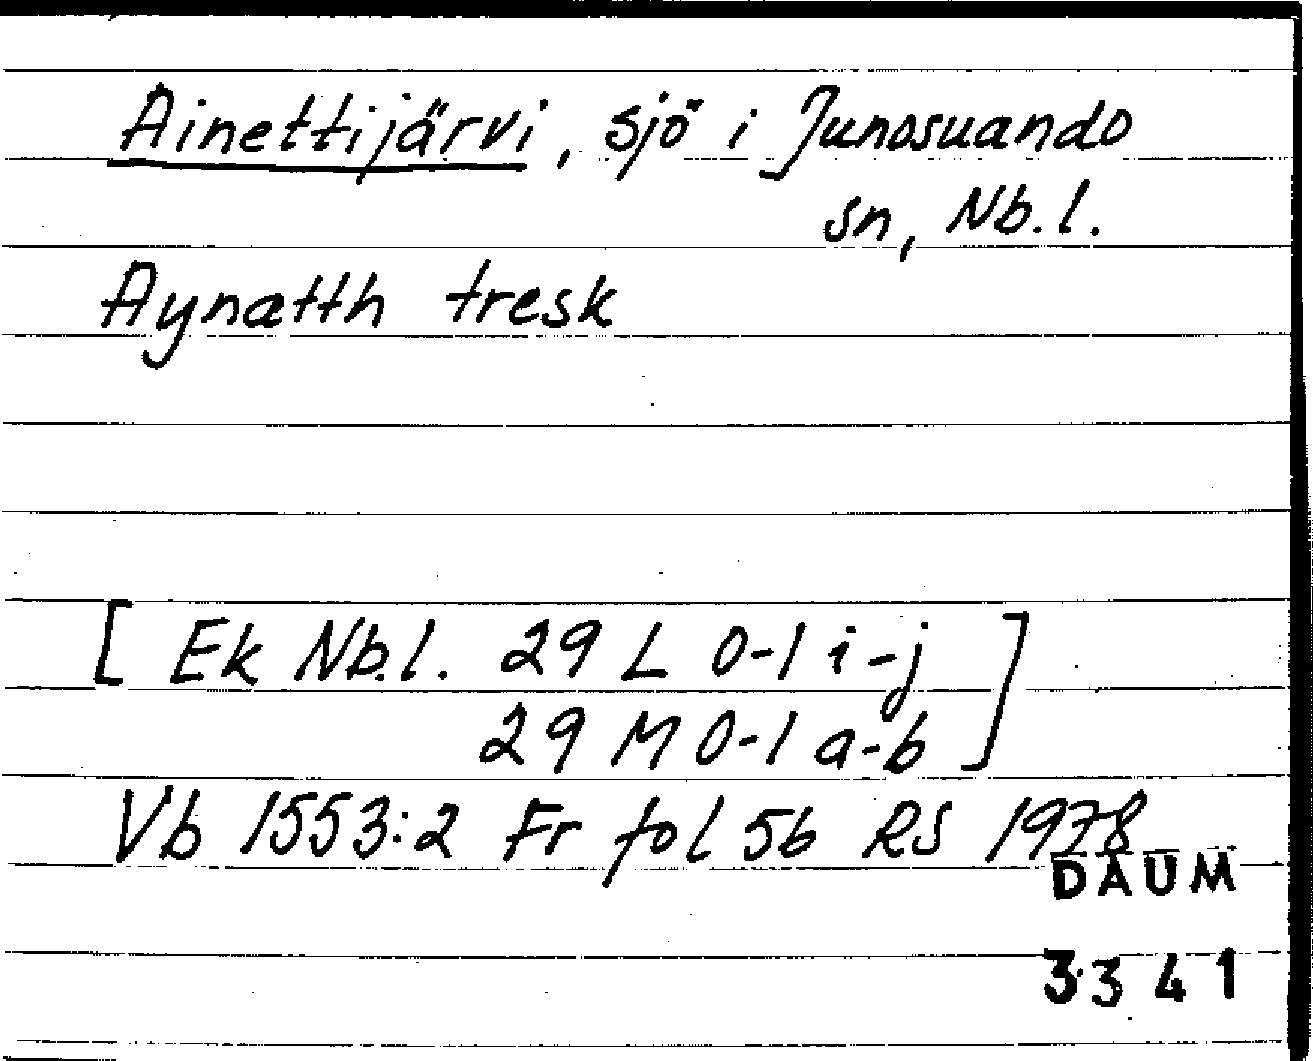 Ainettijärvi, sjö i Junosuando
sn, Nb.l.
Aynætth tresk
[ Ek Nb.l. 29 L 0-1 i-j
29 M 0-1 a-b ]
Vb 1553:2 Fr fol 56 RS 1978
DAUM
3341